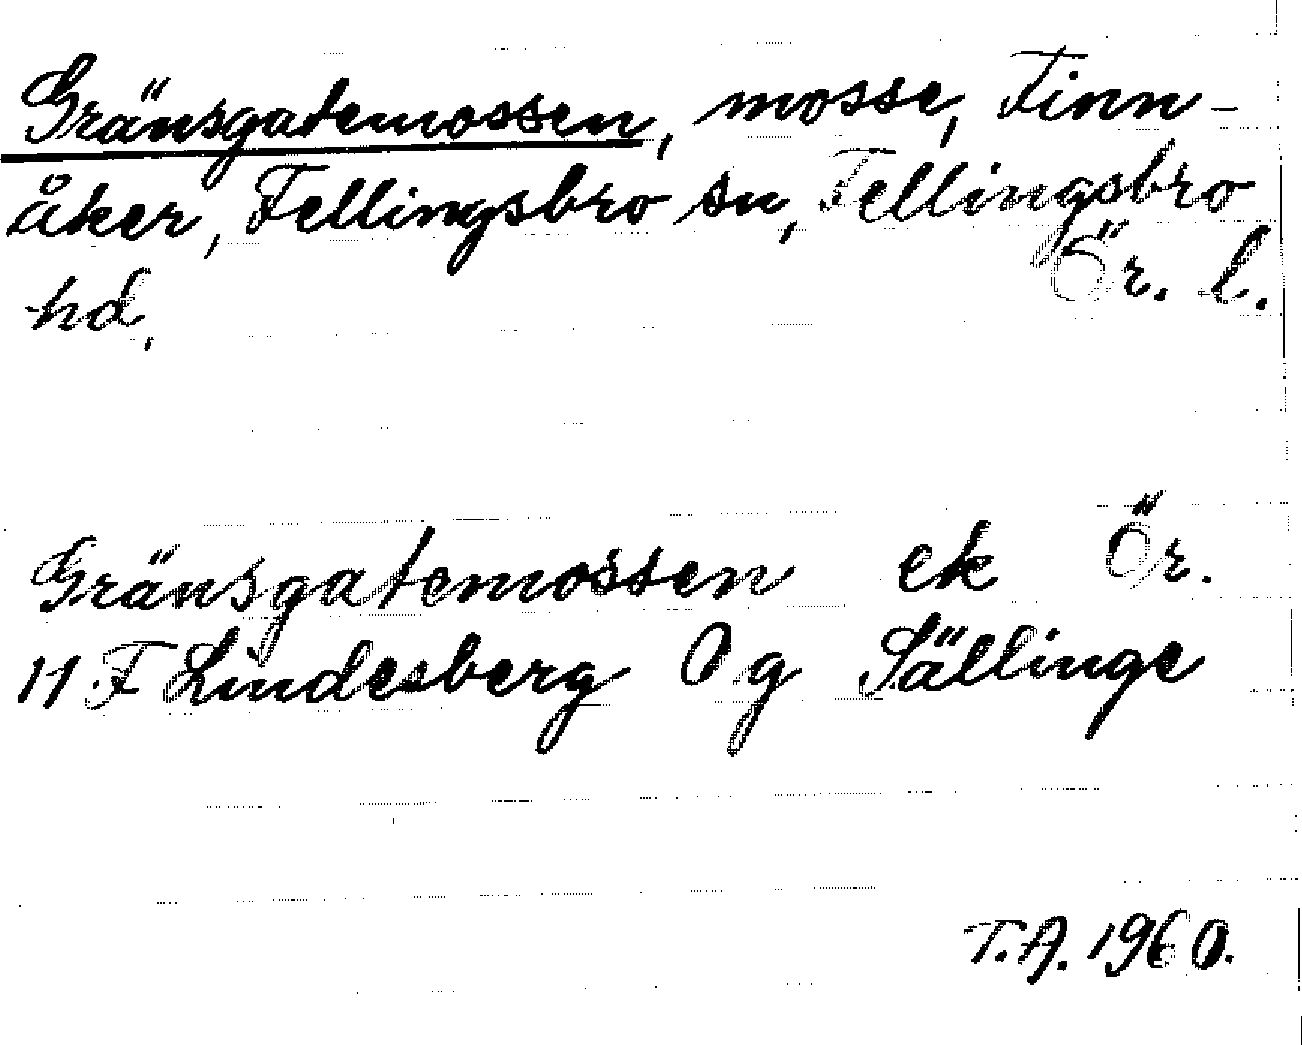 Gränsgatemossen, mosse, Finn-
åker, Fellingsbro sn, Fellingsbro
hd, Ör. l.
Gränsgatemossen ek Ör.
11 F Lindesberg 0 g Sällinge
T.A. 1960.